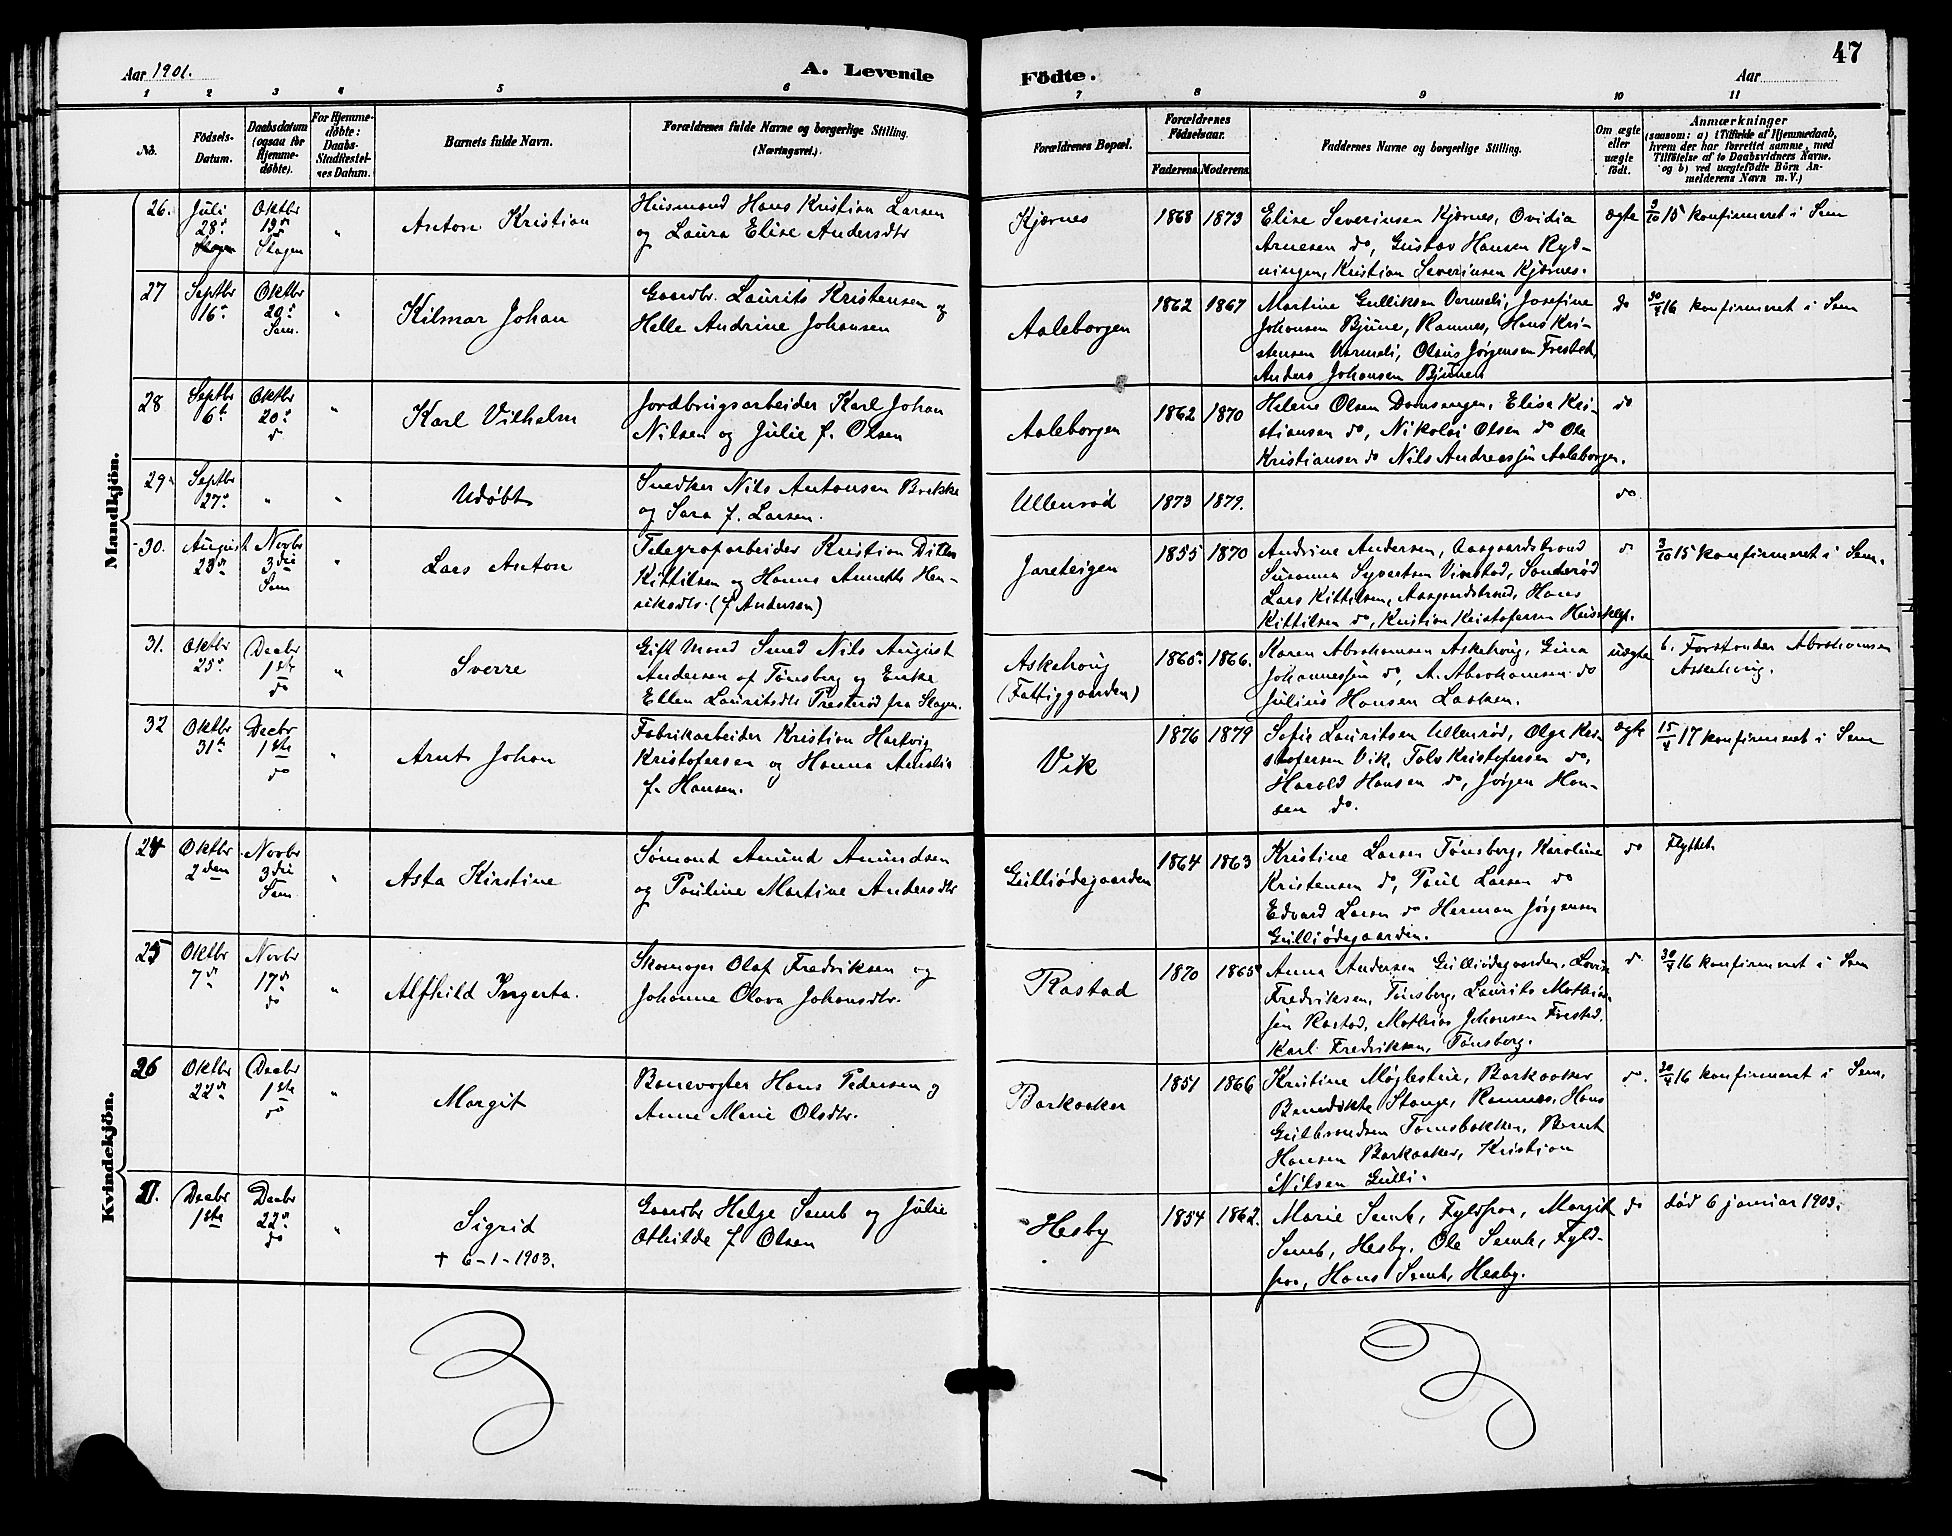 47
Aar 1901.
A. Levende
Födte.
Aar
1 2 3 4 5 6 7 8 9 10 11
No.
Födsels-
Datum.
Daabsdatum
(ogsaa for
Hjemme-
döbte).
For Hjemme-
döbte:
Daabs-
Stadfæstel-
ses Datum.
Barnets fulde Navn.
Forældrenes fulde Navne og borgerlige Stilling.
(Næringsvei.)
Forældrenes Bopæl.
Forældrenes
Födselsaar.
Faderens. Moderens.
Faddernes Navne og borgerlige Stilling.
Om ægte
eller
uægte
födt.
Anmærkninger
(saasom: a) i Tilfælde af Hjemmedaab,
hvem der har forrettet samme, med
Tilföielse af to Daabsvidners Navne,
og b) ved uægtefödte Börn An-
melderens Navn m.V.)
Mandkjön.
26.
Juli
28de
Oktbr
13de
Slagen
"
Anton Kristian
Husmand Hans Kristian Larsen
og Laura Elise Andersdtr
Kjærnes
1868 1873
Elise Severinsen Kjærnes, Ovidia
Arnesen do, Gustav Hansen Ryd-
ningen, Kristian Severinsen Kjærnes.
ægte
3/10 15 konfirmeret i Sem
27
Septbr
16de
Oktbr
20de
Sem.
"
Kilmar Johan
Gaardbr. Laurits Kristensen og
Helle Andrine Johansen
Aaleborgen
1862 1867
Martine Gulliksen Vermeli, Josefine
Johansen Bjune, Ramnes, Hans Kri-
stensen Vermeli, Olaus Jørgensen Frestad,
Anders Johansen Bjunen
do
30/4 16 konfirmeret i Sem
28
Septbr
6te
Oktbr
20de
do
"
Karl Vilhelm
Jordbrugsarbeider Karl Johan
Nilsen og Julie f. Olsen
Aaleborgen
1862 1870
Helene Olsen Ramsengen, Elise Kri-
stiansen do, Nikolai Olsen do Ole
Kristiansen do Nils Andreassen Aaleborgen.
do
29
Septbr
27de
"
"
Udøbt
Snedker Nils Antonsen Brekke
og Sara f. Larsen.
Ullenrød
1873 1879.
do
30.
August
23de
Novbr
3die
Sem
"
Lars Anton
Telegrafarbeider Kristian Ditlev
Kittilsen og Hanna Annette Hen-
riksdtr. (f Andersen)
Jareteigen
1855 1870
Andrine Andersen, Aasgaardstrand
Susanna Syvertsen Vivestad, Sanderød
Lars Kittilsen, Aasgaardstrand, Hans
Kittilsen do, Kristian Kristofersen Heieklep.
do
3/10 15 konfirmeret i Sem.
31.
Oktbr
25de
Decbr
1ste
do
"
Sverre
Gift Mand Smed Nils August
Andersen af Tønsberg og Enke
Ellen Lauritsdtr Presterød fra Slagen.
Askehoug
(Fattiggaarden)
1865 1866.
Karen Abrahamsen Askehoug, Gina
Johannessen do, A. Abrahamsen do
Julius Hansen Lasken.
uægte
b. Forstander Abrahamsen
Askehoug.
32
Oktbr
31te
Decbr
1ste
do
"
Arnt Johan
Fabrikarbeider Kristian Hartvig
Kristofersen og Hanna Amalie
f. Hansen.
Vik
1876 1879
Sofie Lauritsen Ullenrød, Olga Kri-
stofersen Vik, Tolv Kristofersen do,
Harald Hansen do, Jørgen Han-
sen do.
ægte
15/4 17 konfirmeret i Sem
Kvindekjön.
24
Oktbr
2den
Novbr
3die
Sem
"
Asta Kirstine
Sømand Amund Amundsen
og Pauline Martine Andersdtr
Gulliødegaarden
1864 1863
Kristine Larsen Tønsberg, Karoline
Kristensen do, Paul Larsen do
Edvard Larsen do Herman Jørgensen
Gulliødegaarden.
do
Flyttet
25
Oktbr
7de
Novbr
17de
do
"
Alfhild Ingerta.
Skomager Olaf Fredriksen og
Johanne Olava Johansdtr.
Rastad
1870 1865
Anna Andersen Gulliødegaarden, Lovise
Fredriksen, Tønsberg, Laurits Mathias-
sen Rastad, Mathias Johansen Frestad,
Karl Fredriksen, Tønsberg.
do
30/4 16 konfirmeret i Sem
26
Oktbr
22de
Decbr
1ste
do
"
Margit
Banevogter Hans Pedersen og
Anne Marie Olsdtr.
Barkaaker
1851 1866
Kristine Møglestue, Barkaaker
Benedikte Stange, Ramnes, Hans
Gulbrandsen Tømsbakken, Bernt
Hansen Barkaaker, Kristian
Nilsen Gulli.
do.
30/4 16 konfirmeret i Sem.
27.
Decbr
1ste
Decbr
22de
do
"
Sigrid
† 6-1-1903.
Gaardbr Helge Semb og Julie
Othilde f Olsen
Hesby
1854 1862.
Marie Semb, Fyldpaa, Margit
Semb, Hesby, Ole Semb, Fyld-
paa, Hans Semb, Hesby.
do
død 6 januar 1903.